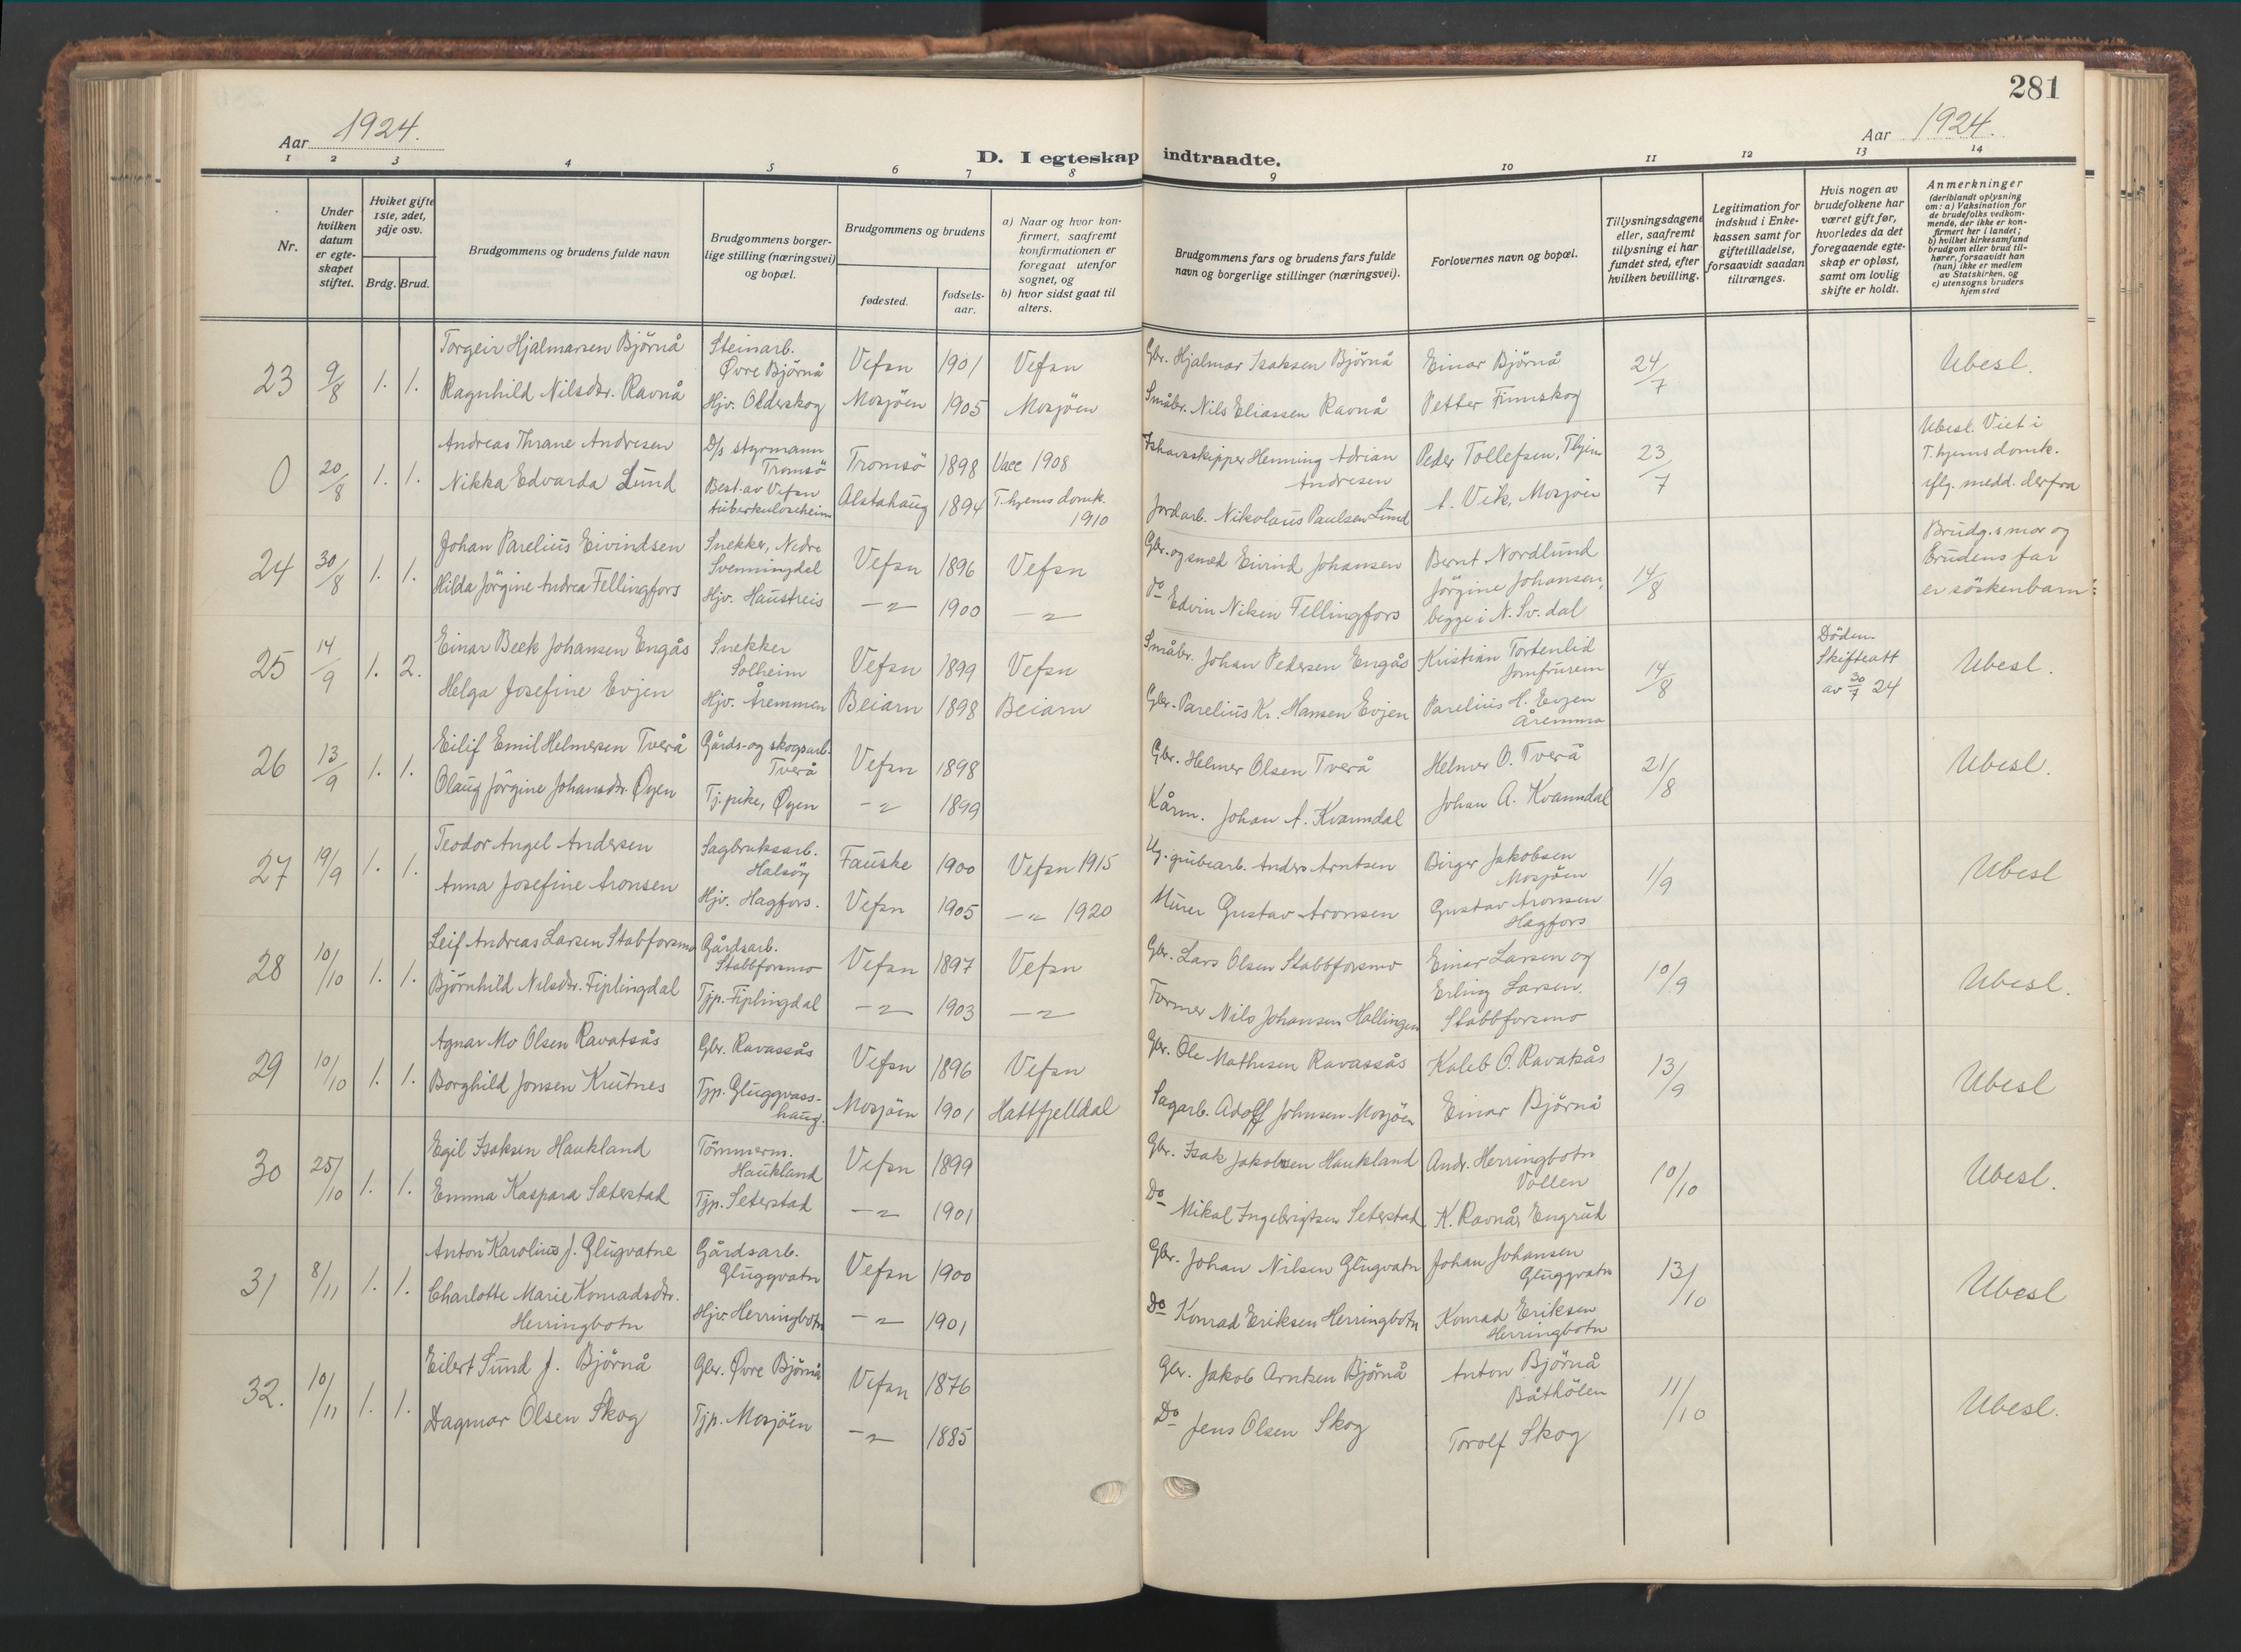 281
Aar 1924.
Aar 1924.
D. I egteskap indtraadte.
1 2 3 4 5 6 7 8 9 10 11 12 13 14
Nr.
Under hvilken datum er egteskapet stiftet.
Hvilket gifte 1ste, 2det, 3dje osv.
Brdg. Brud.
Brudgommens og brudens fulde navn
Brudgommens borgerlige stilling (næringsvei) og bopæl.
Brudgommens og brudens
fødested.
fødselsaar.
a) Naar og hvor konfirmert, saafremt konfirmationen er foregaat utenfor sognet, og
b) hvor sidst gaat til alters.
Brudgommens fars og brudens fars fulde navn og borgerlige stillinger (næringsvei).
Forlovernes navn og bopæl.
Tillysningsdagene eller, saafremt tillysning ei har fundet sted, efter hvilken bevilling.
Legitimation for indskud i Enkekassen samt for giftetilladelse, forsaavidt saadan tiltrænges.
Hvis nogen av brudefolkene har været gift før, hvorledes da det foregaaende egteskap er opløst, samt om lovlig skifte er holdt.
Anmerkninger (deriblandt oplysning om: a) Vaksination for de brudefolks vedkommende, der ikke er konfirmert her i landet; b) hvilket kirkesamfund brudgom eller brud tilhører, forsaavidt han (hun) ikke er medlem av Statskirken, og c) utensogns bruders hjemsted
23 9/8 1. 1. Torgeir Hjalmarsen Bjørnå Steinarb. Øvre Bjørnå Vefsn 1901 Vefsn Gbr. Hjalmar Isaksen Bjørnå Einar Bjørnå 24/7 Ubesl.
Ragnhild Nilsdtr. Ravnå Hjv. Olderskog Mosjøen 1905 Mosjøen Småbr. Nils Eliassen Ravnå Petter Finnskog
0 20/8 1. 1. Andreas Thrane Andresen D/s styrmann Tromsö Tromsö 1898 Vacc 1908 Ishavsskipper Henning Adrian Andresen Peder Tollefsen, Thjem 23/7 Ubesl. Viet i T.hjems domk. iflg. medd. derfra
Nikka Edvarda Lund Best. av Vefsn tuberkuloseheim Alstahaug 1894 T.hjems domk. 1910 Jordarb. Nikolaus Paulsen Lund A. Vik, Mosjøen
24 30/8 1. 1. Johan Parelius Eivindsen Snekker, Nedre Svenningdal Vefsn 1896 Vefsn Gbr. og smed Eivind Johansen Bernt Nordlund 14/8 Brudg.s mor og brudens far er söskenbarn
Hilda Jörgine Andrea Fellingfors Hjv. Haustreis —"— 1900 —"— do Edvin Niksen Fellingfors Jörgine Johansen, begge i N. Sv. dal
25 14/9 1. 2. Einar Beck Johansen Engås Snekker Solheim Vefsn 1899 Vefsn Småbr. Johan Pedersen Engås Kristian Tortenlid Jomfrurem 14/8 Döden. Skifteatt av 30/7 24 Ubesl.
Helga Josefine Evjen Hjv. Åremmen Beiarn 1898 Beiarn Gbr. Parelius Kr. Hansen Evjen Parelius H. Evjen Åremma
26 13/9 1. 1. Eilif Emil Helmersen Tverå Gårds- og skogsarb. Tverå Vefsn 1898 Gbr. Helmer Olsen Tverå Helmer O. Tverå 21/8 Ubesl.
Olaug Jörgine Johansdtr. Øyen Tj.pike, Øyen —"— 1899 Kårm. Johan A. Kvanndal Johan A. Kvanndal
27 19/9 1. 1. Teodor Angel Andersen Sagbruksarb. Halsöy Fauske 1900 Vefsn 1915 Ug. grubearb. Anders Arntsen Birger Jakobsen Mosjöen 1/9 Ubesl
Anna Josefine Aronsen Hjv. Hagfors. Vefsn 1905 —"— 1920 Murer Gustav Aronsen Gustav Aronsen Hagfors
28 10/10 1. 1. Leif Andreas Larsen Stabforsmo Gårdsarb. Stabbforsmo Vefsn 1897 Vefsn Gbr. Lars Olsen Stabbforsmo Einar Larsen og 10/9 Ubesl.
Björnhild Nilsdtr. Fiplingdal Tjp. Fiplingdal —"— 1903 —"— Former Nils Johansen Hallingen Erling Larsen. Stabbforsmo
29 10/10 1. 1. Agnar Mo Olsen Ravatsås Gbr. Ravassås Vefsn 1896 Vefsn Gbr. Ole Mathisen Ravassås Kaleb O. Ravatsås 13/9 Ubesl
Borghild Jonsen Krutnes Tjp. Gluggvasshaug. Mosjöen 1901 Hattfjelldal Sagarb. Adolf Johnsen Mosjöen Einar Bjørnå
30 25/10 1. 1. Egil Isaksen Haukland Tömmerm. Haukland Vefsn 1899 Gbr. Isak Jakobsen Haukland Andr. Herringbotn Vollen 10/10 Ubesl.
Emma Kaspara Sæterstad Tjp. Seterstad —"— 1901 Do Mikal Ingebrigtsen Seterstad K. Ravnå, Engrud
31 8/11 1. 1. Anton Karolius J. Glugvatne Gårdsarb. Gluggvatn Vefsn 1900 Gbr. Johan Nilsen Glugvatn Johan Johansen Gluggvatn 13/10 Ubesl
Charlotte Marie Konradsdtr. Herringbotn Hjv. Herringbotn —"— 1901 Do Konrad Eriksen Herringbotn Konrad Eriksen Herringbotn
32. 10/11 1. 1. Eilert Sund J. Bjørnå Gbr. Øvre Bjørnå Vefsn 1876 Gbr. Jakob Arntsen Bjørnå Anton Bjørnå Båthölen 11/10 Ubesl.
Dagmar Olsen Skog Tjp. Mosjöen —"— 1885 Do Jens Olsen Skog Torolf Skog